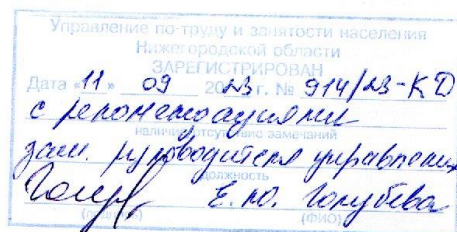 Управление по труду и занятости населения
Нижегородской области
ЗАРЕГИСТРИРОВАН
Дата «11» 09 2023 г. № 914/23-КД
с рекомендациями
наличие/отсутствие замечаний
зам. руководителя управления
должность
Е.Ю. Голубева
(подпись) (ФИО)